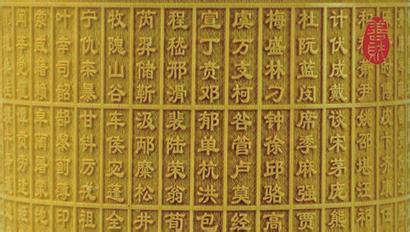 善财
计伏成戴 谈宋茅庞
杜阮蓝闵 席季麻强 贾
梅盛林刁 钟徐邱骆 高
虞万支柯 昝管卢莫 经
宣丁贲邓 郁单杭洪 包
程嵇邢滑 裴陆荣翁 荀
芮羿储靳 汲邴糜松 井
牧隗山谷 车侯宓蓬 全
宁仇栾暴 甘钭厉戎 祖
叶幸司韶 郜黎蓟薄